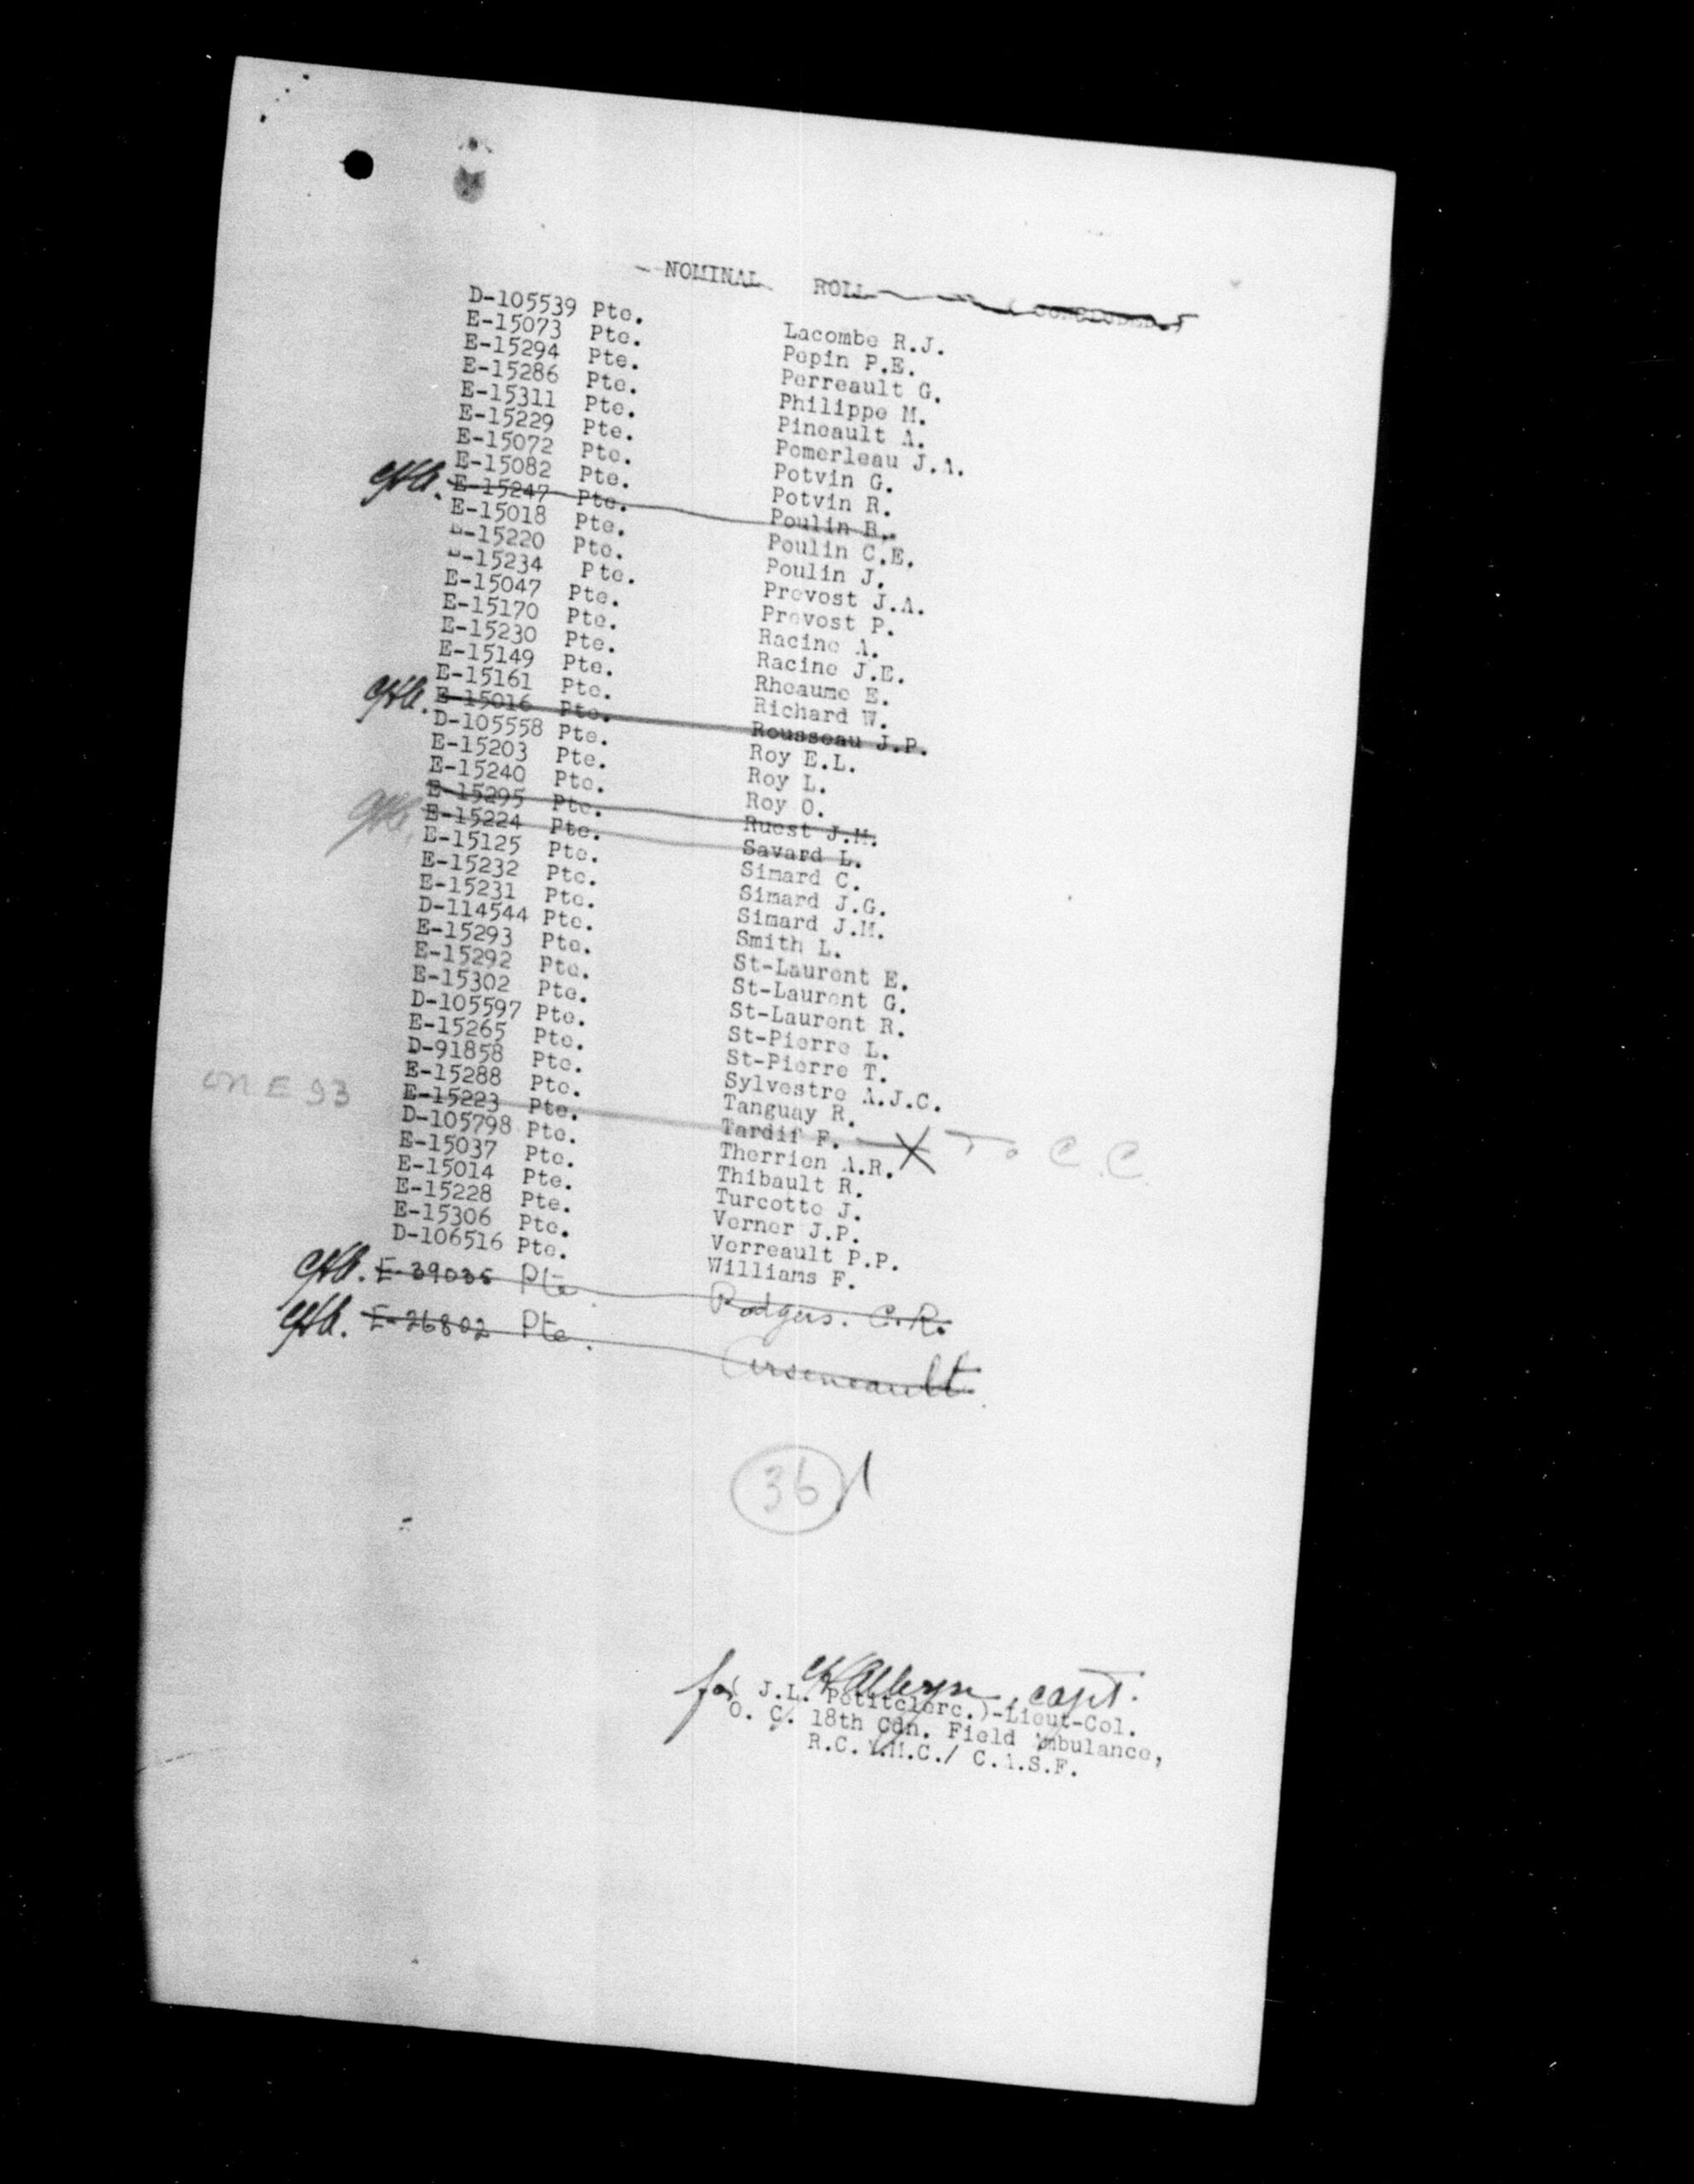 NOMINAL ROLL (CONCLUDED.)
D-105539 Pte. Lacombe R.J.
E-15073 Pte. Pepin P.E.
E-15294 Pte. Perreault G.
E-15286 Pte. Philippe M.
E-15311 Pte. Pineault A.
E-15229 Pte. Pomerleau J.A.
E-15072 Pte. Potvin G.
E-15082 Pte. Potvin R.
E-15247 Pte. Poulin B.
E-15018 Pte. Poulin C.E.
E-15220 Pte. Poulin J.
E-15234 Pte. Prevost J.A.
E-15047 Pte. Prevost P.
E-15170 Pte. Racine A.
E-15230 Pte. Racine J.E.
E-15149 Pte. Rheaume E.
E-15161 Pte. Richard W.
E-15016 Pte. Rousseau J.P.
D-105558 Pte. Roy E.L.
E-15203 Pte. Roy L.
E-15240 Pte. Roy O.
E-15295 Pte. Ruest J.M.
E-15224 Pte. Savard L.
E-15125 Pte. Simard C.
E-15232 Pte. Simard J.G.
E-15231 Pte. Simard J.M.
D-114544 Pte. Smith L.
E-15293 Pte. St-Laurent E.
E-15292 Pte. St-Laurent G.
E-15302 Pte. St-Laurent R.
D-105597 Pte. St-Pierre L.
E-15265 Pte. St-Pierre T.
D-91858 Pte. Sylvestre A.J.C.
E-15288 Pte. Tanguay R.
on E 93 E-15223 Pte. Tardif F. X To C.C.
D-105798 Pte. Therrien A.R.
E-15037 Pte. Thibault R.
E-15014 Pte. Turcotte J.
E-15228 Pte. Verner J.P.
E-15306 Pte. Verreault P.P.
D-106516 Pte. Williams F.
E-39035 Pte. Rodgers. C.R.
E-26802 Pte. Arseneault
36
capt.
for (J.L. Petitclerc.)-Lieut-Col.
O. C. 18th Cdn. Field Ambulance,
R.C.A.M.C./ C.A.S.F.